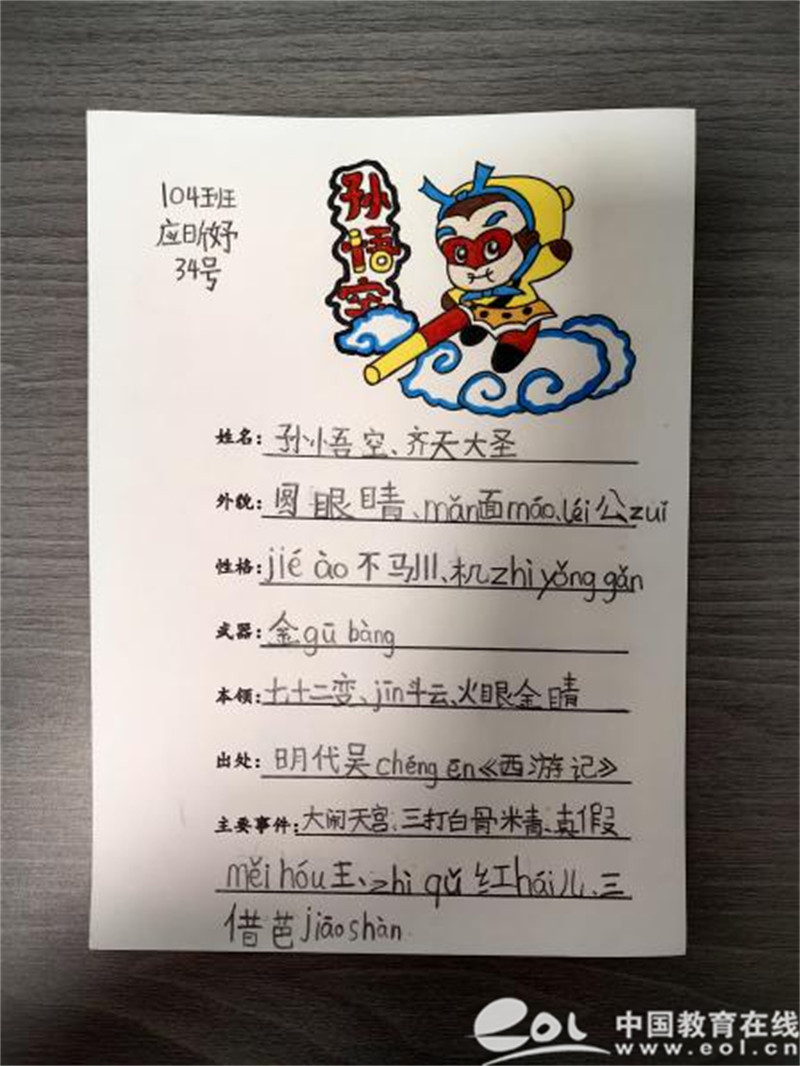 104班
应昕妤
34号
孙悟空
姓名：孙悟空、齐天大圣
外貌：圆眼睛、mǎn面máo、léi公zuǐ
性格：jié ào不马川、机zhì yǒng gǎn
武器：金gū bàng
本领：七十二变、jīn斗云、火眼金睛
出处：明代吴chéng ēn《西游记》
主要事件：大闹天宫、三打白骨米青、真假
měi hóu王、zhì qǔ红hái儿、三
借芭jiāo shàn
eol 中国教育在线
www.eol.cn